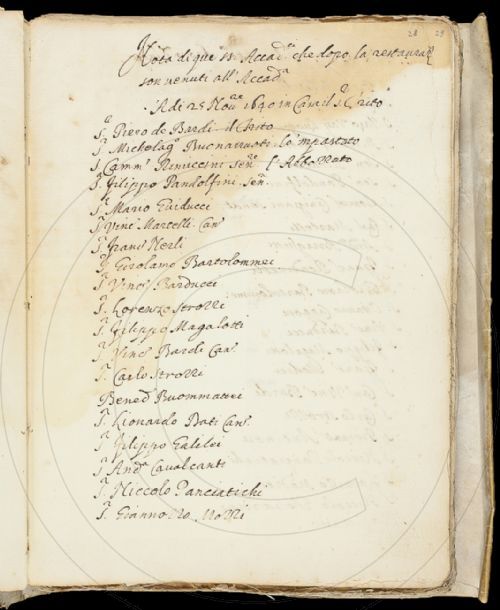 28 29
Nota di que' SS.ri Accad.i che dopo la restauraz.e
son venuti all'Accad.a
Adi 25 Nov.re 1640 in Casa il S.r Trito
S.r Piero de Bardi il Trito
S.r Michelag.o Buonarruoti lo'mpastato
S. Camm.o Rinuccini Sen.e
S. Filippo Pandolfini Sen.e
S.r Mario Guiducci
S.r Vinc.o Martelli Can.o
S.r Franc.o Nerli
S.r Girolamo Bartolommei
S.r Vinc.o Barducci
S.r Lorenzo Strozzi
S.r Filippo Magalotti
S.r Vinc.o Bardi Can.o
S.r Carlo Strozzi
Bened.o Buommattei
S.r Lionardo Dati Can.o
S.r Filippo Galilei
S.r And.a Cavalcanti
S.r Niccolo Panciatichi
S.r Giannozzo